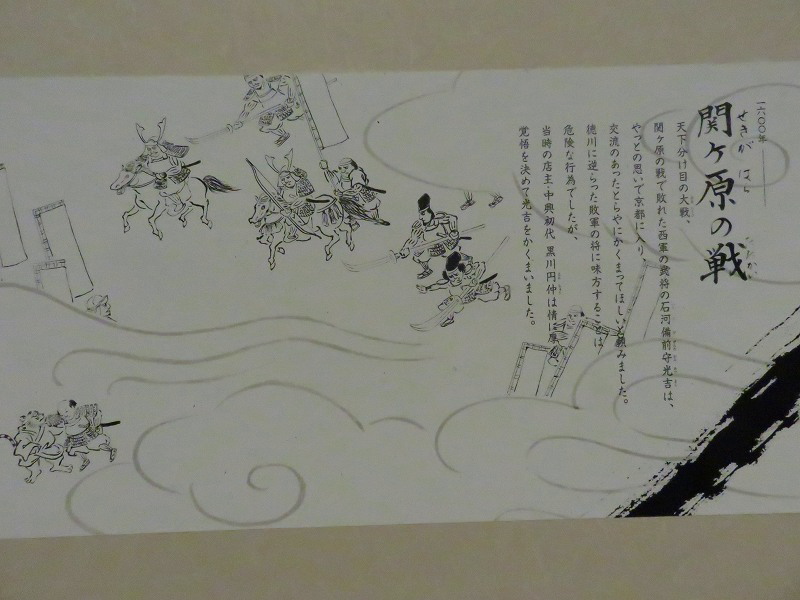 一六〇〇年
関ヶ原の戦
せきが はら
天下分け目の大戦、
関ヶ原の戦で敗れた西軍の武将の石河備前守光吉は、
やっとの思いで京都に入り、
交流のあったとらやにかくまってほしいと頼みました。
徳川に逆らった敗軍の将に味方することは
危険な行為でしたが、
当時の店主・中興初代 黒川円仲は情に厚く
覚悟を決めて光吉をかくまいました。